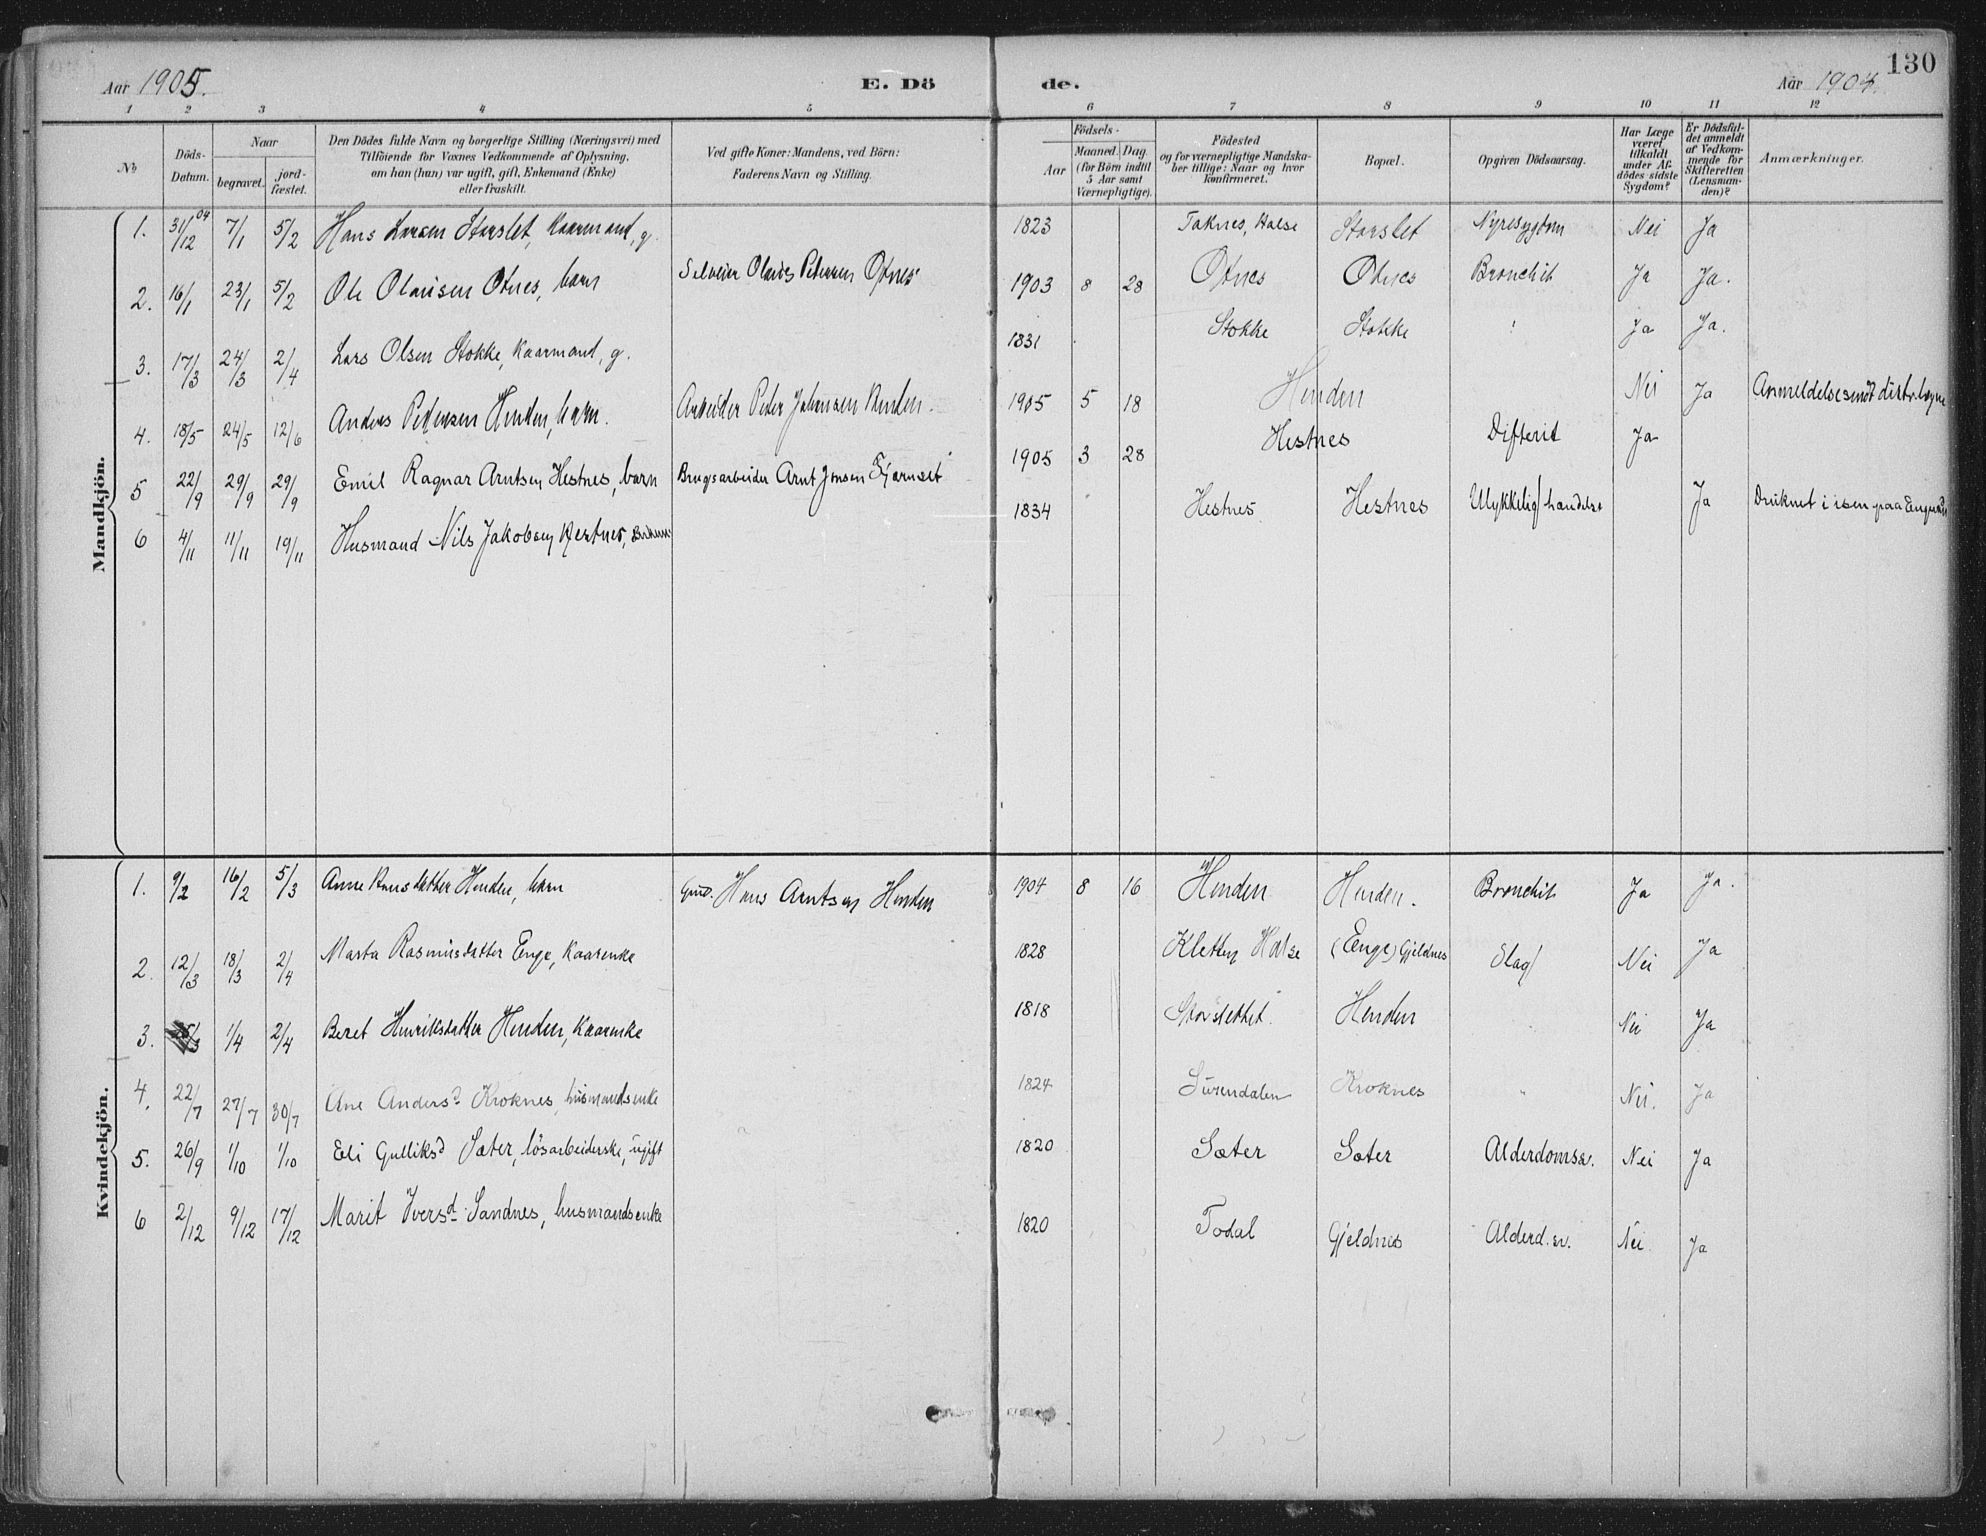 130
Aar 1905.
E. Dö
de.
Aar 1904.
1 2 3 4 5 6 7 8 9 10 11 12
No
Döds-Datum.
Naar
begravet.
jord-fæstet.
Den Dödes fulde Navn og borgerlige Stilling (Næringsvei) med
Tilföiende for Voxnes Vedkommende af Oplysning,
om han (hun) var ugift, gift, Enkemand (Enke)
eller fraskilt.
Ved gifte Koner: Mandens, ved Börn:
Faderens Navn og Stilling.
Födsels-
Aar
Maaned. Dag.
(for Börn indtil
5 Aar samt
Værnepligtige).
Födested
og for værnepligtige Mandska-
ber tillige: Naar og hvor
konfirmeret.
Bopæl.
Opgiven Dödsaarsag.
Har Læge
været
tilkaldt
under Af-
dödes sidste
Sygdom?
Er Dödsfal-
det anmeldt
af Vedkom-
mende for
Skifteretten
(Lensman-
den)?
Anmærkninger.
Mandkjön.
1. 31/12 04 7/1 5/2 Hans Larsen Storslet, kaarmand, g. 1823 Taknes, Halse Storslet Nyresygdom Nei Ja
2. 16/1 23/1 5/2 Ole Olausen Otnes, barn Selveier Petersen Otnes 1903 8 28 Otnes Otnes Bronchit Ja Ja.
3. 17/3 24/3 2/4 Lars Olsen Stokke, kaarmand, g. 1831 Stokke Stokke " Ja Ja.
4. 18/5 24/5 12/6 Anders Pedersen Henden, barn. Arbeider Peder Johansen Henden. 1905 5 18 Henden Nei Ja Anmeldelse sendt distr. læge
5 22/9 29/9 29/9 Emil Ragnar Arntsen Hestnes, barn Brugsarbeider Arnt Jonsen Fjærnset 1905 3 28 Hestnes Difterit Ja
6 4/11 11/11 19/11 Husmand Nils Jakobsen Hestnes, 1834 Hestnes Hestnes Ulykkelig hændelse Ja Druknet i isen paa
Kvindekjön.
1. 9/2 16/2 5/3 Anne Hansdatter Henden, barn Gmd. Hans Arntsen Henden 1904 8 16 Henden Henden. Bronchit Ja Ja.
2. 12/3 18/3 2/4 Marta Rasmusdatter Enge, kaarenke 1828 Kletten Halse (Enge) Gjeldnes Slag Nei Ja
3. 1/4 2/4 Beret Henriksdatter Henden, kaarenke 1818 Storslettet. Henden " Nei Ja
4. 22/7 27/7 30/7 Ane Andersd. Kroknes, husmandsenke 1824 Surendalen Kroknes " Nei. Ja
5. 26/9 1/10 1/10 Eli Gulliksd Sæter, lösarbeiderske, ugift 1820 Sæter Sæter Alderdomssv. Nei Ja
6 2/12 9/12 17/12 Marit Iversd. Sandnes, husmandsenke 1820 Todal Gjeldnes Alderd.sv. Nei Ja